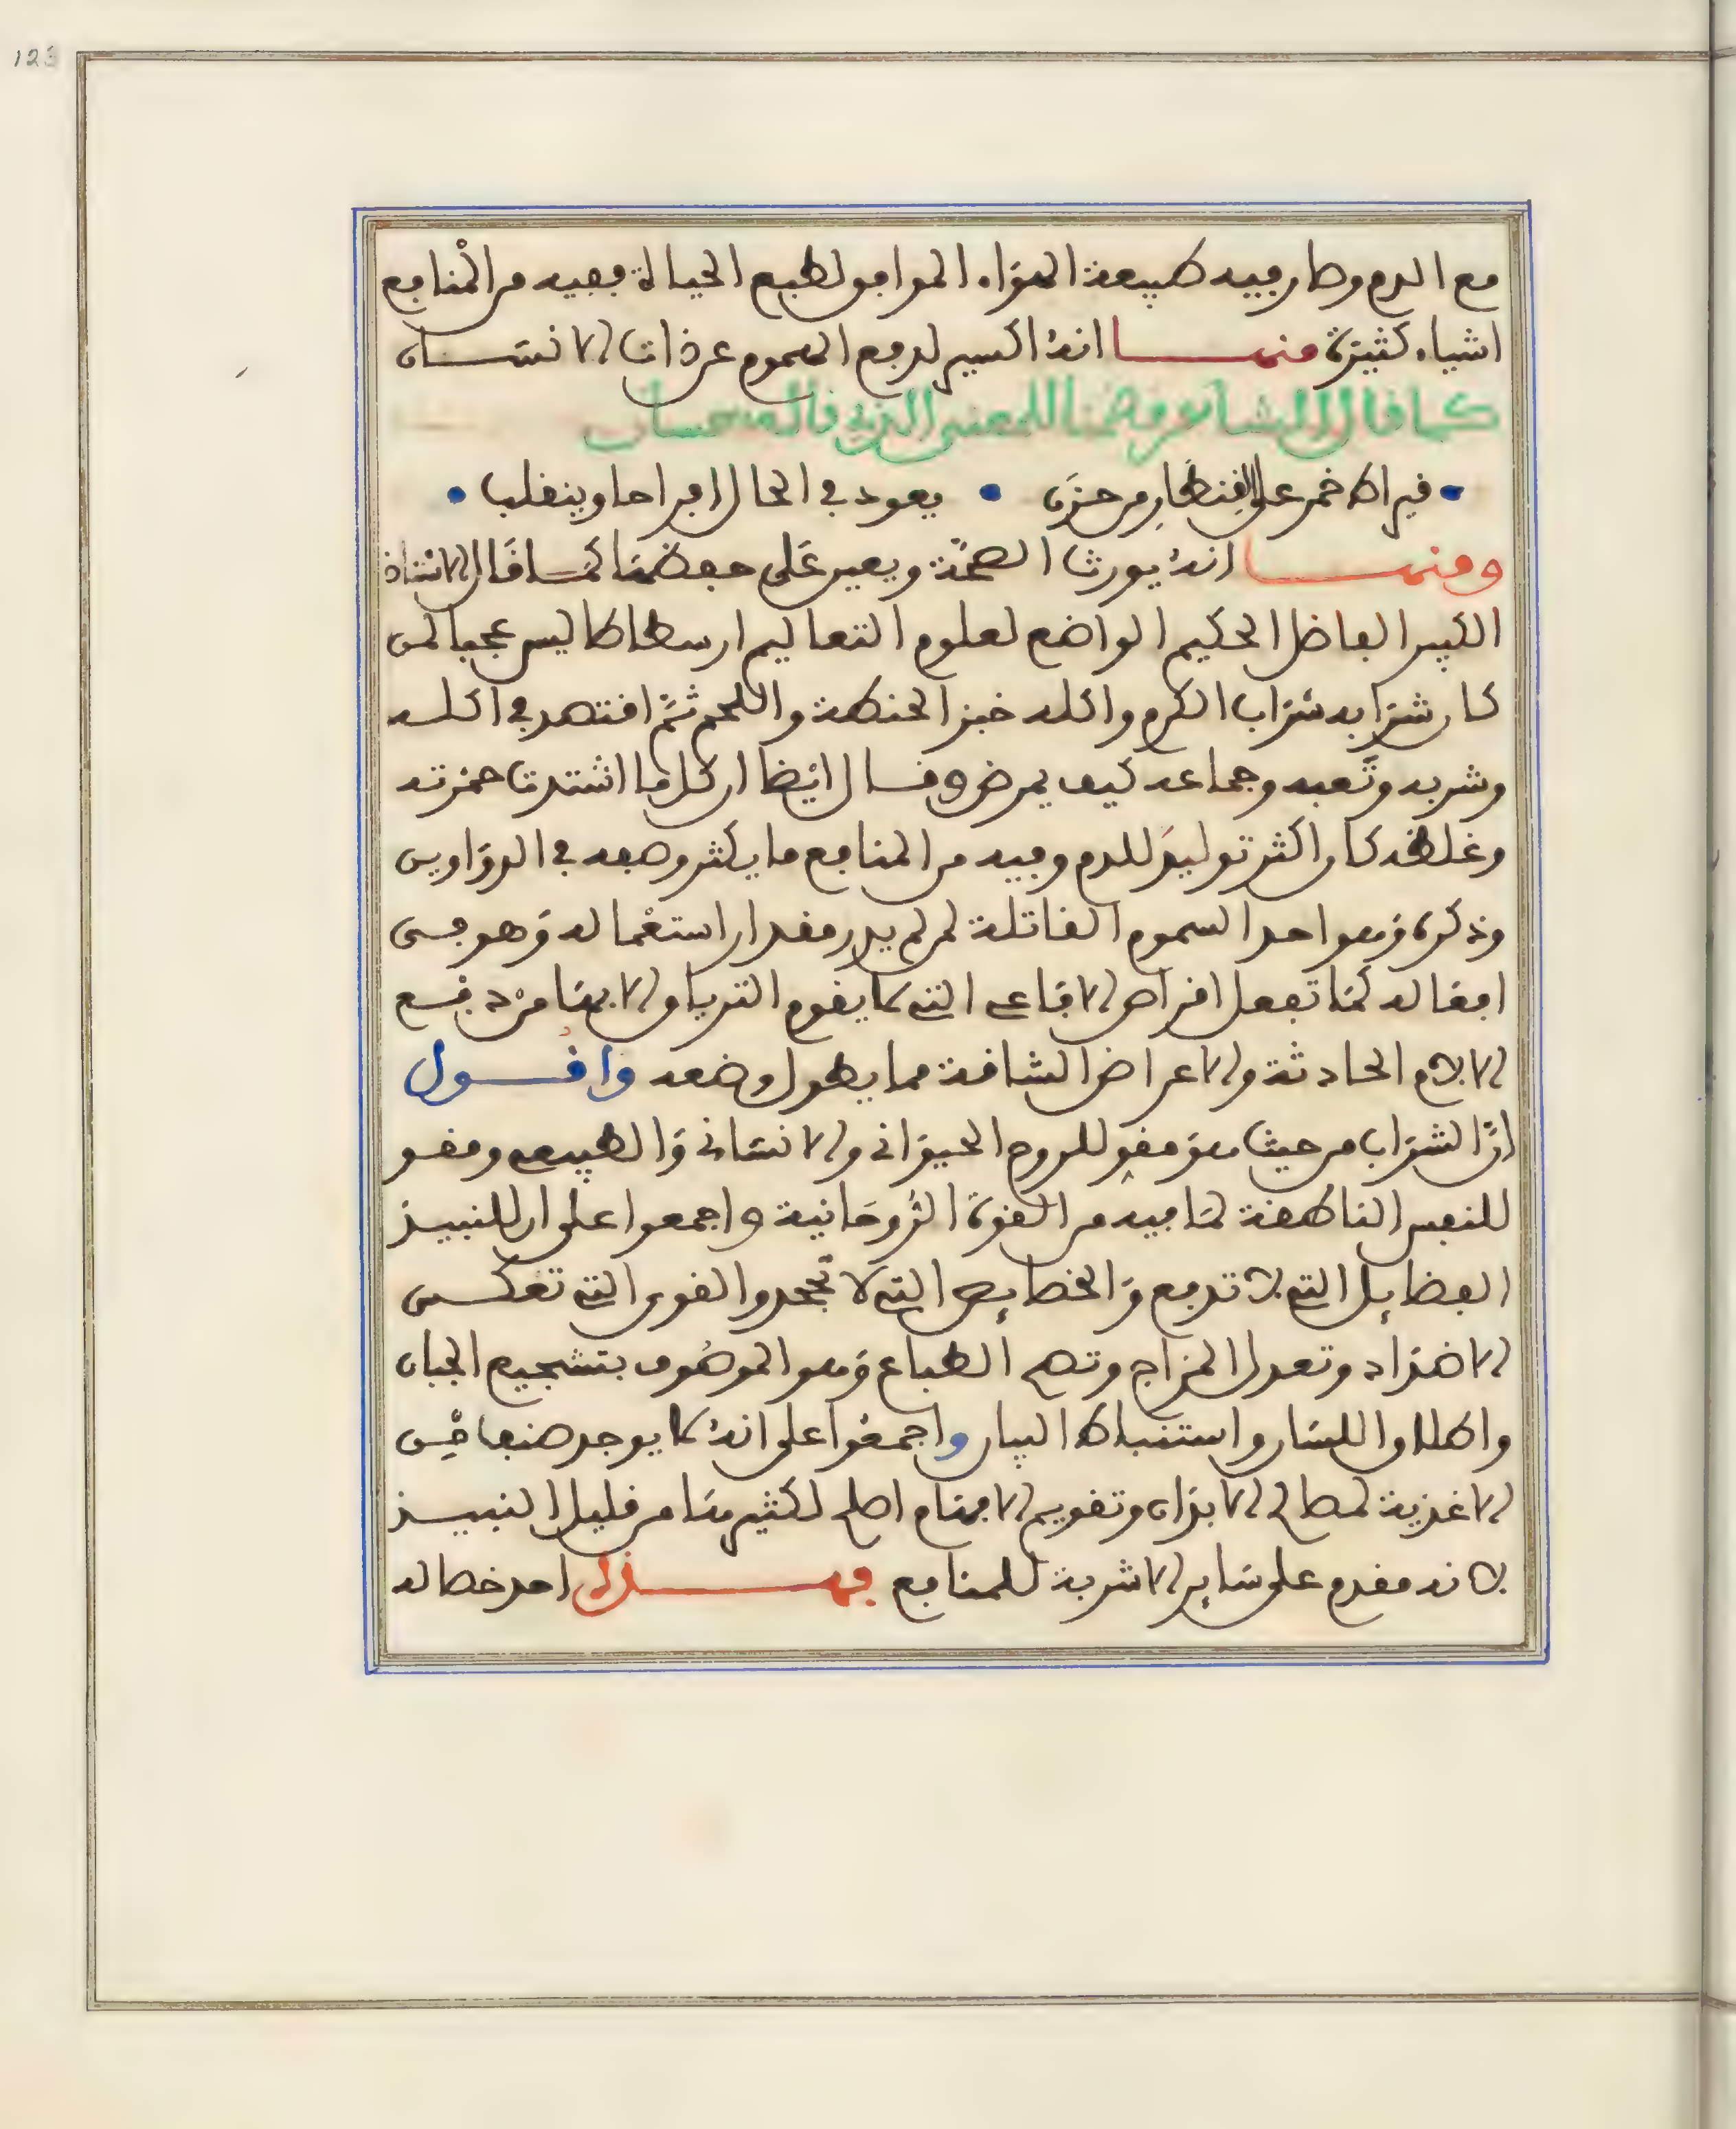 123
مع الدم وصار فيه طبيعة الهواء الموافق لطبع الحياة ففيه من المنافع
اشياء كثيرة منها انه اكسير لدفع الهموم عن ذات الانسان
كما قال الشاعر مضمنا للمعنى الذي قاله حسان
قيراط خمر على القنطار من حزن يعود في الحال افراحا وينقلب
ومنها انه يورث الصحة ويعين على حفظها كما قال الاستاذ
الكبير الفاضل الحكيم الواضع لعلوم التعاليم ارسطاطاليس عجبا لمن
كان شرابه شراب الكرم واكله خبز الحنطة واللحم ثم اقتصد في اكله
وشربه وتعبه وجماعه كيف يمرض وقال ايضا ان كل ما اشتدت حمرته
وغلظه كان اكثر توليد للدم وفيه من المنافع ما يكثر وصفه في الدواوين
وذكره وهو احد السموم القاتلة لمن لم يدر مقدار استعماله وهو في
افعاله كما تفعل اقراص الافاعي التي لا يقوم الترياق الا بها من دفع
الالام الحادثة والاعراض الشاقة مما يطول وصفه واقول
ان الشراب من حيث هو مقو للروح الحيواني والانساني والطبيعي ومقو
للنفس الناطقة لما فيه من القوة الروحانية واجمعوا على ان للنبيذ
الفضايل التي لا تدفع والخصايص التي لا تجحد والقوى التي تعكس
الاضداد وتعدل المزاج وتصح الطباع وهو الموصوف بتشجيع الجبان
واطلاق اللسان واستنباط البيان واجمعوا على انه لا يوجد صنعا في
الاغذية لمصالح الابدان وتقويم الافهام اصلح لكثير منها من قليل النبيذ
لانه مقدم على ساير الاشربة للمنافع فهذا احد خصاله